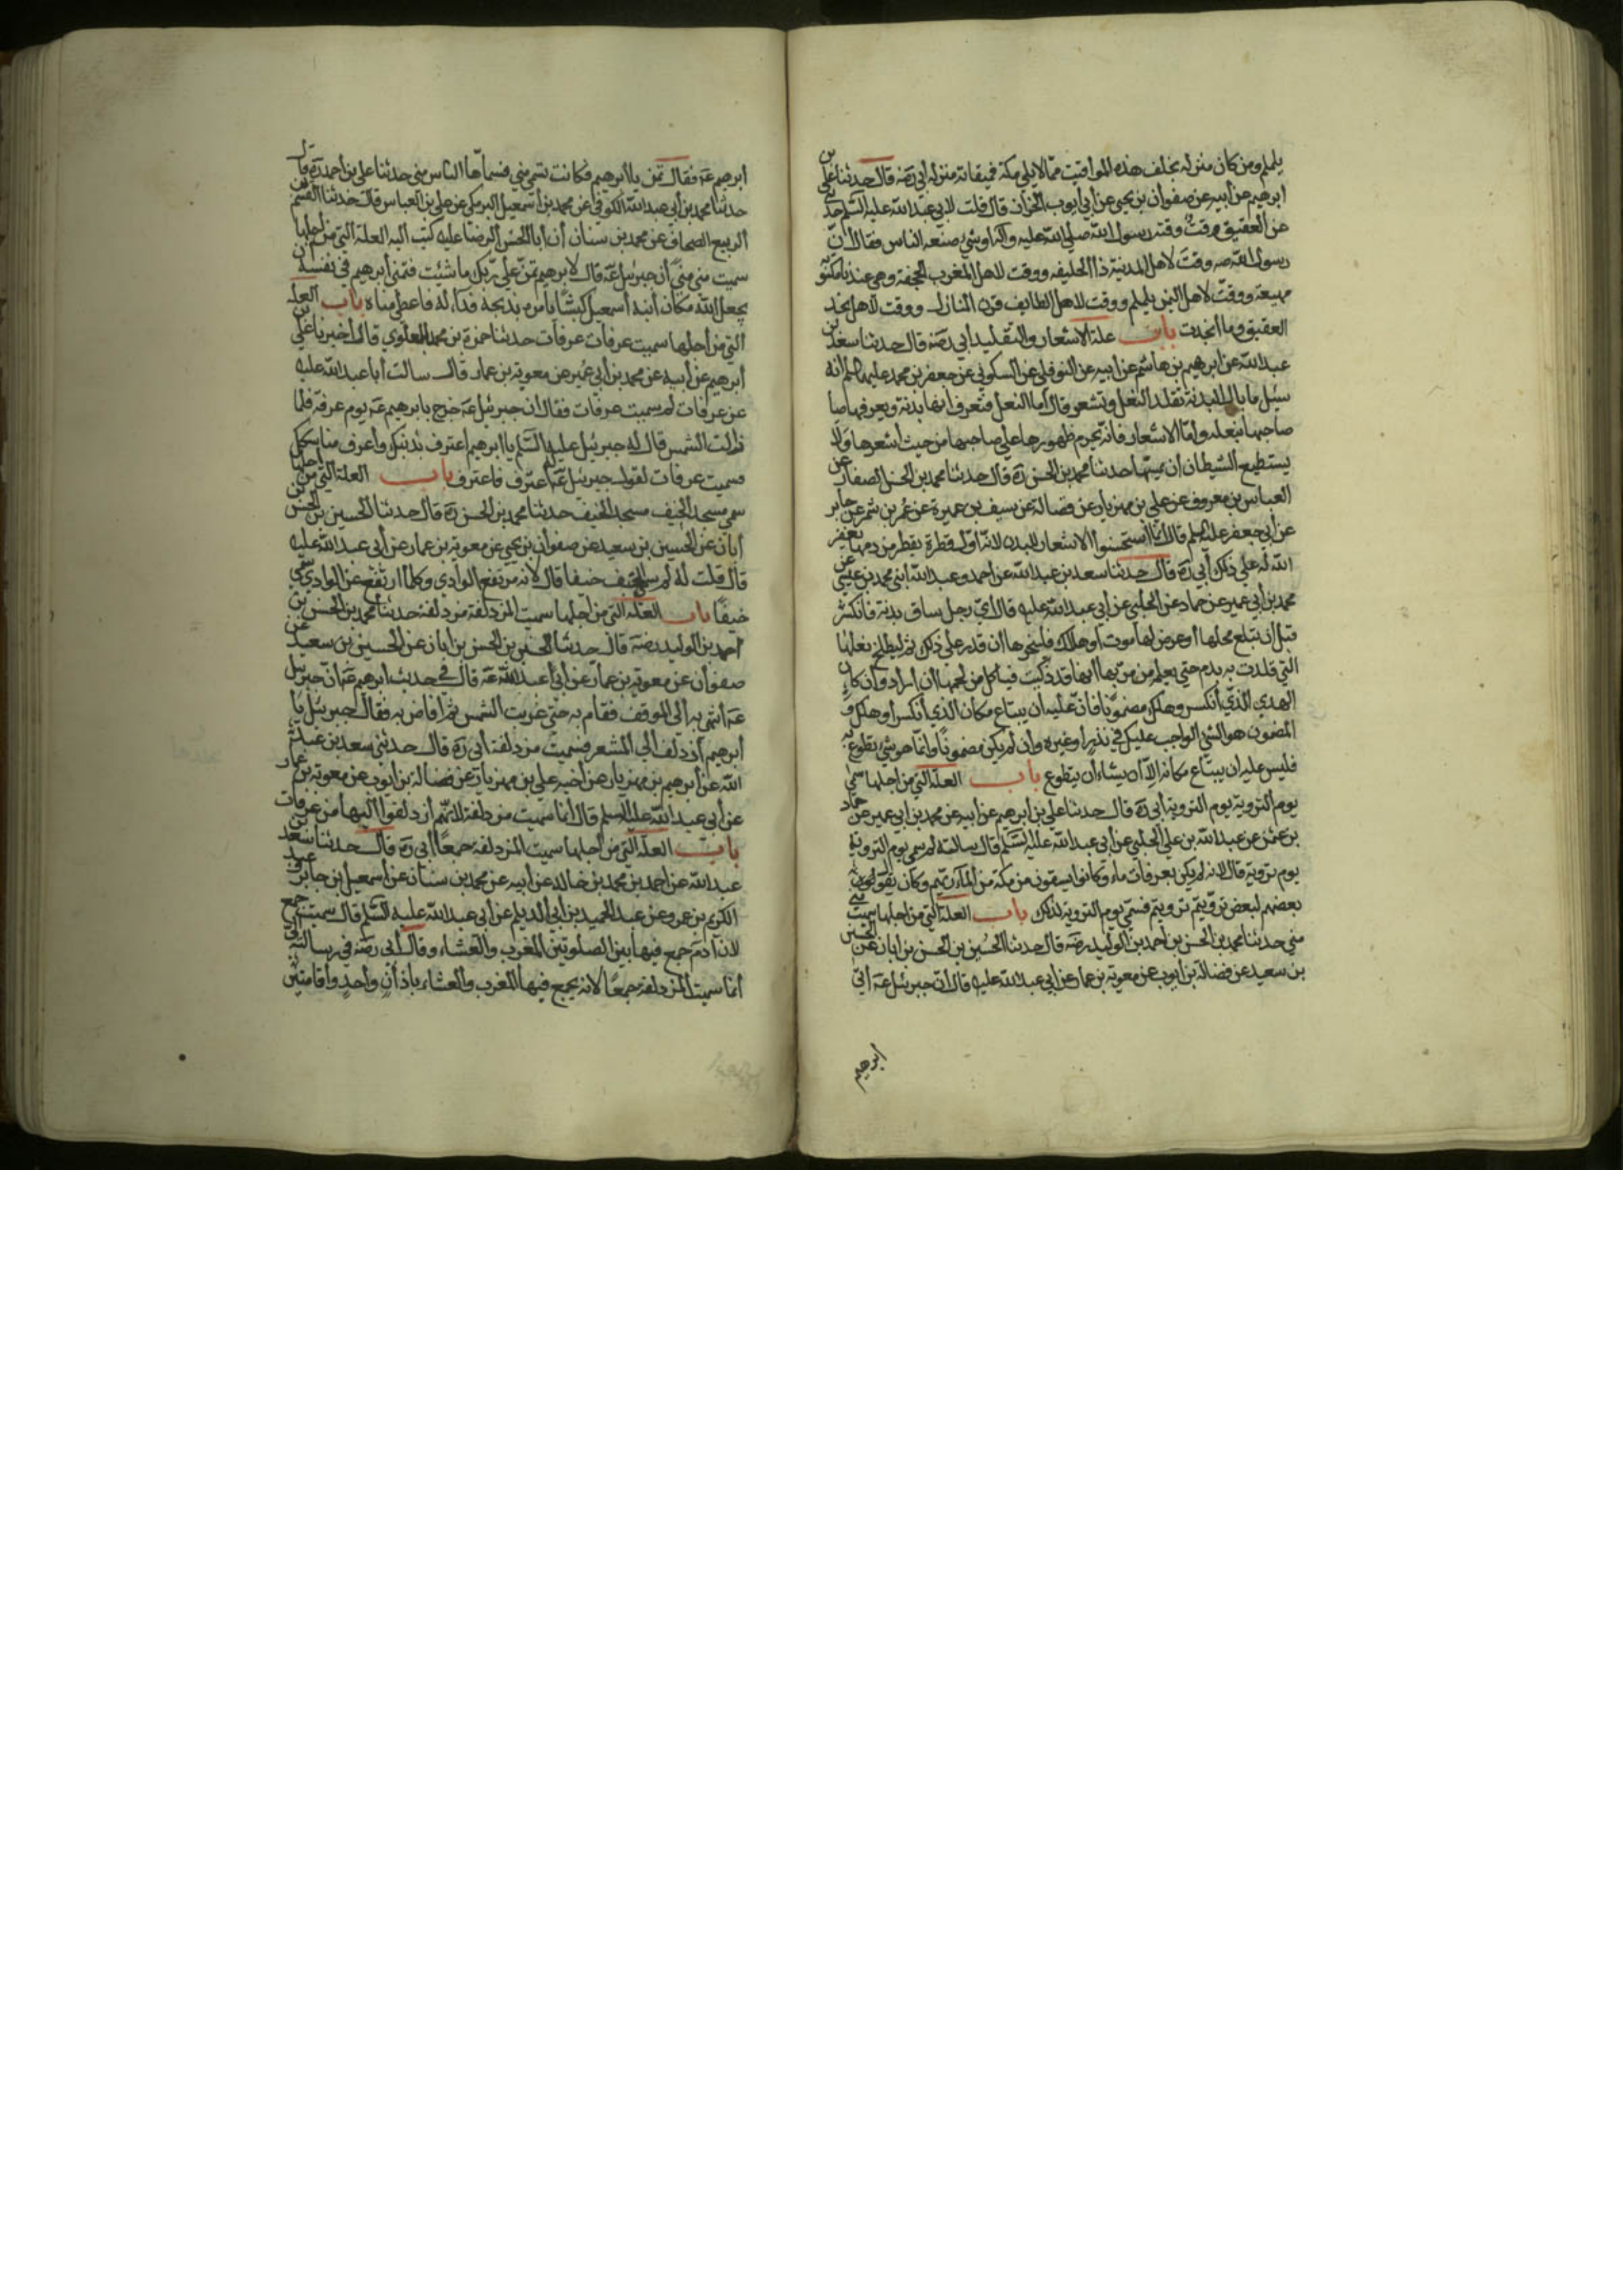 يلملم ومن كان منزله بخلف هذه المواقيت مما لا يلي مكة فميقاته منزله أبي رضه قال حدثنا علي بن
ابرهيم عن أبيه عن صفوان بن يحيى عن أبي أيوب الخزاز قال قلت لابي عبد الله عليه السلم حدثني
عن العقيق وقت وقته رسول الله صلي الله عليه وآله او شئ صنعه الناس فقال ان
رسول الله صه وقت لاهل المدينة ذا الحليفه ووقت لاهل المغرب الجحفة وهي عندنا مكتوبه
مهيعة ووقت لاهل اليمن يلملم ووقت لاهل الطايف قرن المنازل ووقت لاهل نجد
العقيق وما انجدت باب علة الاشعار والتقليد أبي رضه قال حدثنا سعد بن
عبد الله عن ابرهيم بن هاشم عن ابيه عن النوفلي عن السكوني عن جعفر بن محمد عليهما السلم انه
سئل ما بال البدنة تقلد النعل وتشعر قال اما النعل فتعرف انها بدنة ويعرفها صا
صاحبها بنعله واما الاشعار فانه يحرم ظهورها علي صاحبها من حيث اشعرها ولا
يستطيع الشيطان ان يمسها حدثنا محمد بن الحسن ره قال حدثنا محمد بن الحسن الصفار عن
العباس بن معروف عن علي بن مهزيار عن فضالة عن سيف بن عميرة عن عمر بن شمر عن جابر
عن أبي جعفر عليه السلم قال انما استحسنوا الاشعار للبدن لانه اول قطرة يقطر من دمها يغفر
الله له علي ذلك أبي ره قال حدثنا سعد بن عبد الله عن احمد وعبد الله ابني محمد بن عيسي عن
محمد بن أبي عمير عن حماد عن الحلبي عن أبي عبد الله عليه قال اي رجل ساق بدنة فانكسرت
قبل ان تبلغ محلها أو عرض لها موت او هلاك فلينحرها ان قدر علي ذلك ثم ليطلخ نعلها
التي قلدت به بدم حتي يعلم من مر بها انها قد ذكيت فياكل من لحمها ان اراد وان كان
الهدي الذي انكسر وهلك مضمونا فان عليه ان يبتاع مكان الذي انكسر او هلك و
المضمون هو الشئ الواجب عليك في نذر او غيره وان لم يكن مضمونا وانما هو شئ تطوع به
فليس عليه ان يبتاع مكانه الا ان يشاء ان يتطوع باب العلة التي من اجلها سمي
يوم التروية يوم التروية أبي ره قال حدثنا علي بن ابرهيم عن ابيه عن محمد بن ابي عمير عن حماد
بن عثمن عن عبد الله بن علي الحلبي عن أبي عبد الله عليه السلم قال سالته لم سمي يوم التروية
يوم تروية قال لانه لم يكن بعرفات ماء وكانوا يسقون من مكة من الماء ريهم وكان يقول
بعضهم لبعض ترويتم ترويتم فسمي يوم التروية لذلك باب العلة التي من اجلها سميت مني
مني حدثنا محمد بن الحسن بن احمد بن الوليد رضه قال حدثنا الحسين بن الحسن بن ابان عن الحسين
بن سعيد عن فضالة بن ايوب عن معوية بن عمار عن ابي عبد الله عليه قال ان جبرئيل عه اتي
ابرهيم
أبرهيم عه فقال تمن يا ابرهيم فكانت تسمي مني فسماها الناس مني حدثنا علي بن أحمد ره قال
حدثنا محمد بن أبي عبد الله الكوفي عن محمد بن أسمعيل البرمكي عن علي بن العباس قال حدثنا القسم بن
الربيع الصحاف عن محمد بن سنان أن أبا الحسن الرضا عليه كتب اليه العلة التي من اجلها
سميت مني مني أن جبرئيل عه قال لابرهيم تمن علي ربك ما شئت فتمني أبرهيم في نفسه ان
يجعل الله مكان أبنه أسمعيل كبشا يامره بذبحه فداء له فاعطي مناه باب العلة
التي من أجلها سميت عرفات عرفات حدثنا حمزة بن محمد العلوي قال أخبرنا علي بن
أبرهيم عن أبيه عن محمد بن أبي عمير عن معوية بن عمار قال سالت أبا عبد الله عليه
عن عرفات لم سميت عرفات فقال ان جبرئيل عه خرج بابرهيم عه يوم عرفة فلما
زالت الشمس قال له جبرئيل عليه السلم يا ابرهيم اعترف بذنبك واعرف مناسكك
فسميت عرفات لقول جبرئيل عه أعترف فاعترف باب العلة التي من أجلها
سمي مسجد الخيف مسجد الخيف حدثنا محمد بن الحسن ره قال حدثنا الحسين بن الحسن بن
أبان عن الحسين بن سعيد عن صفوان بن يحيي عن معوية بن عمار عن أبي عبد الله عليه
قال قلت له لم سمي الخيف خيفا قال لانه مرتفع الوادي وكلما ارتفع عن الوادي سمي
خيفا باب العلة التي من اجلها سميت المزدلفة مزدلفة حدثنا محمد بن الحسن بن
احمد بن الوليد رضه قال حدثنا الحسين بن الحسن بن ابان عن الحسين بن سعيد عن
صفوان عن معوية بن عمار عن أبي عبد الله عه قال في حديث ابرهيم عه ان جبرئيل
عه أنتهي به الي الموقف فقام به حتي غربت الشمس ثم افاض به فقال جبرئيل يا
أبرهيم أزدلف الي المشعر فسميت مزدلفة أبي ره قال حدثني سعد بن عبد
الله عن أبرهيم بن مهزيار عن أخيه علي بن مهزيار عن فضالة بن ايوب عن معوية بن عمار
عن أبي عبد الله عليه السلم قال أنما سميت مزدلفة لانهم أزدلفوا اليها من عرفات
باب العلة التي من أجلها سميت المزدلفة جمعا أبي ره قال حدثنا سعد بن
عبد الله عن احمد بن محمد بن خالد عن أبيه عن محمد بن سنان عن أسمعيل بن جابر وعبد
الكريم بن عمرو عن عبد الحميد بن أبي الديلم عن أبي عبد الله عليه السلم قال سميت جمع
لان آدم جمع فيها بين الصلوتين المغرب والعشاء وقال أبي رضه في رسالته إلي
أنما سميت المزدلفة جمعا لانه يجمع فيها المغرب والعشاء باذان واحد وأقامتين